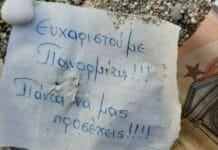 Ευχαριστούμε
Πανορμίτη!!!
Πάντα να μας
προσέχεις!!!!